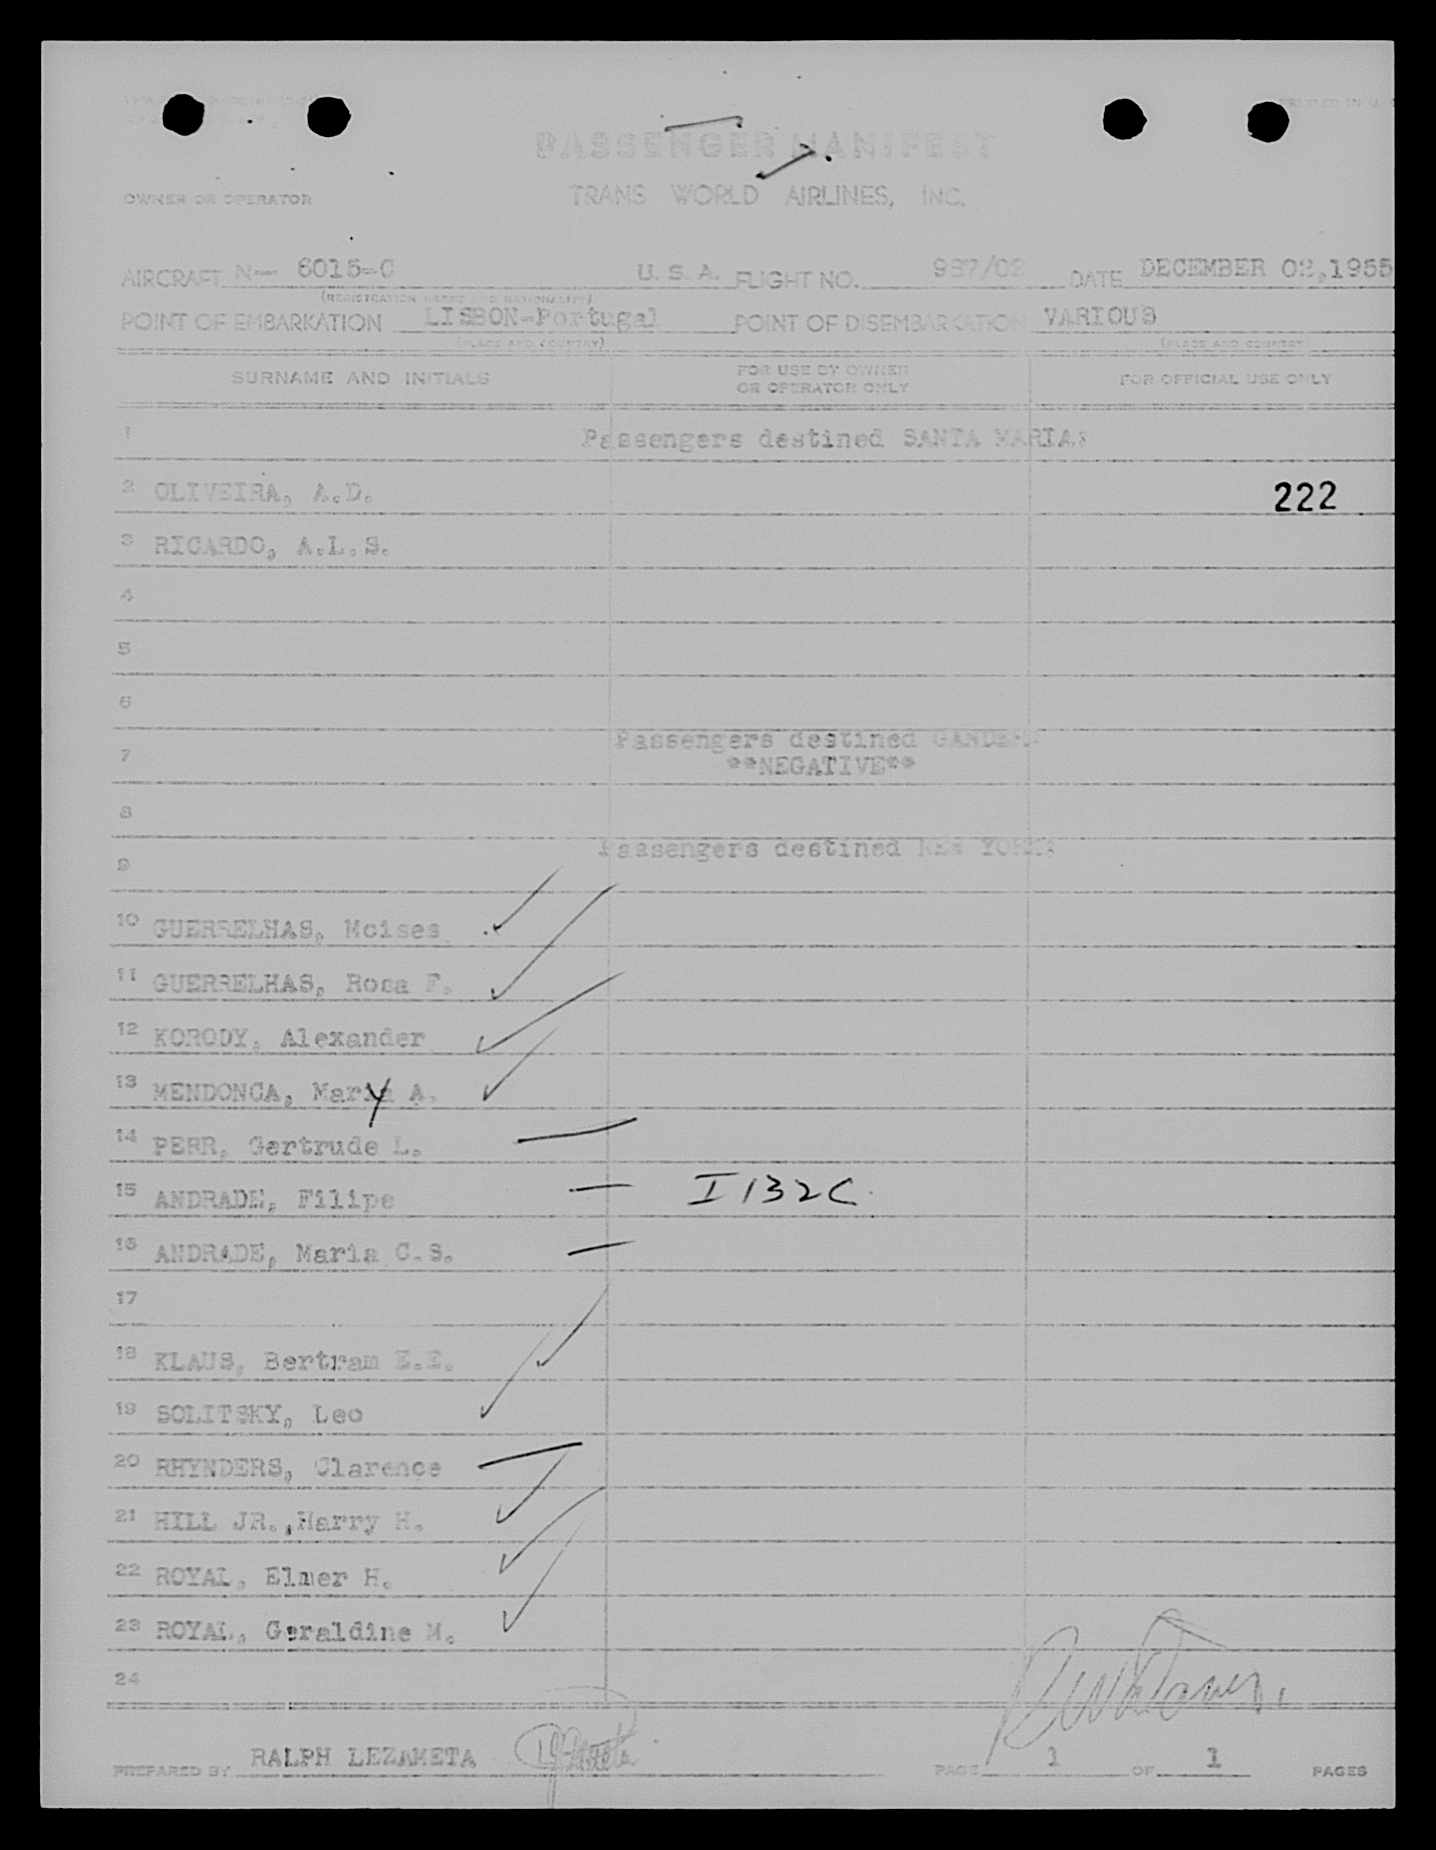 PASSENGER MANIFEST
OWNER OR OPERATOR TRANS WORLD AIRLINES, INC.
AIRCRAFT N- 6015-C U. S. A. FLIGHT NO. 967/02 DATE DECEMBER 02,1955
(REGISTRATION MARKS AND NATIONALITY)
POINT OF EMBARKATION LISBON-Portugal POINT OF DISEMBARKATION VARIOUS
(PLACE AND COUNTRY) (PLACE AND COUNTRY)
SURNAME AND INITIALS FOR USE BY OWNER OR OPERATOR ONLY FOR OFFICIAL USE ONLY
1 Passengers destined SANTA MARIA:
2 OLIVEIRA, A.D. 222
3 RICARDO, A.L.S.
4
5
6
7 Passengers destined GANDER:
**NEGATIVE**
8
9 Passengers destined NEW YORK:
10 GUERRELHAS, Moises
11 GUERRELHAS, Rosa F.
12 KORODY, Alexander
13 MENDONCA, Mary A.
14 PERR, Gertrude L.
15 ANDRADE, Filipe I 132C
16 ANDRADE, Maria C.S.
17
18 KLAUS, Bertram E.E.
19 SOLITSKY, Leo
20 RHYNDERS, Clarence
21 HILL JR.,Harry H.
22 ROYAL, Elmer H.
23 ROYAL, Geraldine M.
24
PREPARED BY RALPH LEZAMETA PAGE 1 OF 1 PAGES